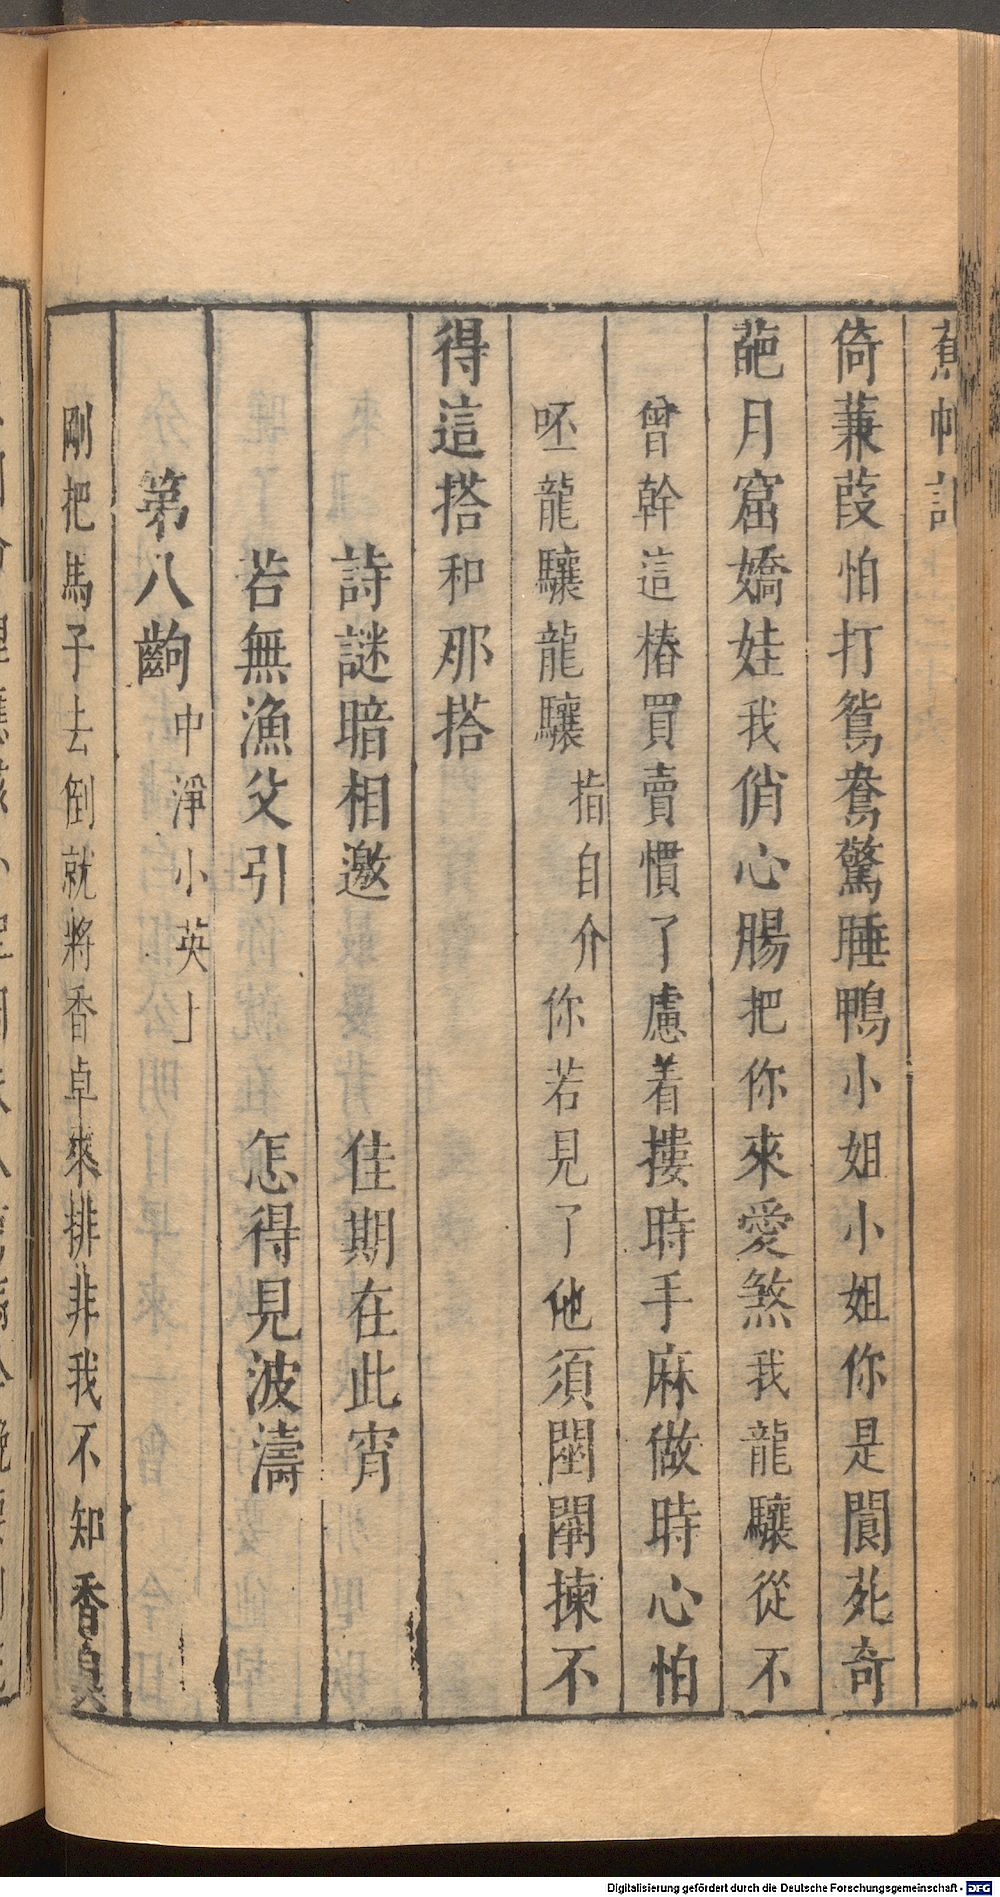 蕉帕記
倚蒹葭怕打鴛鴦驚睡鴨小姐小姐你是閬苑奇
葩月窟嬌娃我俏心腸把你來愛煞我龍驤從不
曾幹這樁買賣慣了慮着摟時手麻做時心怕
呸龍驤龍驤指自介你若見了他須闥闈揀不
得這搭和那搭
詩謎暗相邀　佳期在此宵
若無漁父引　怎得見波濤
第八齣中淨小英上
剛把馬子去倒就將香卓來排非我不知香臭
Digitalisierung gefördert durch die Deutsche Forschungsgemeinschaft - DFG